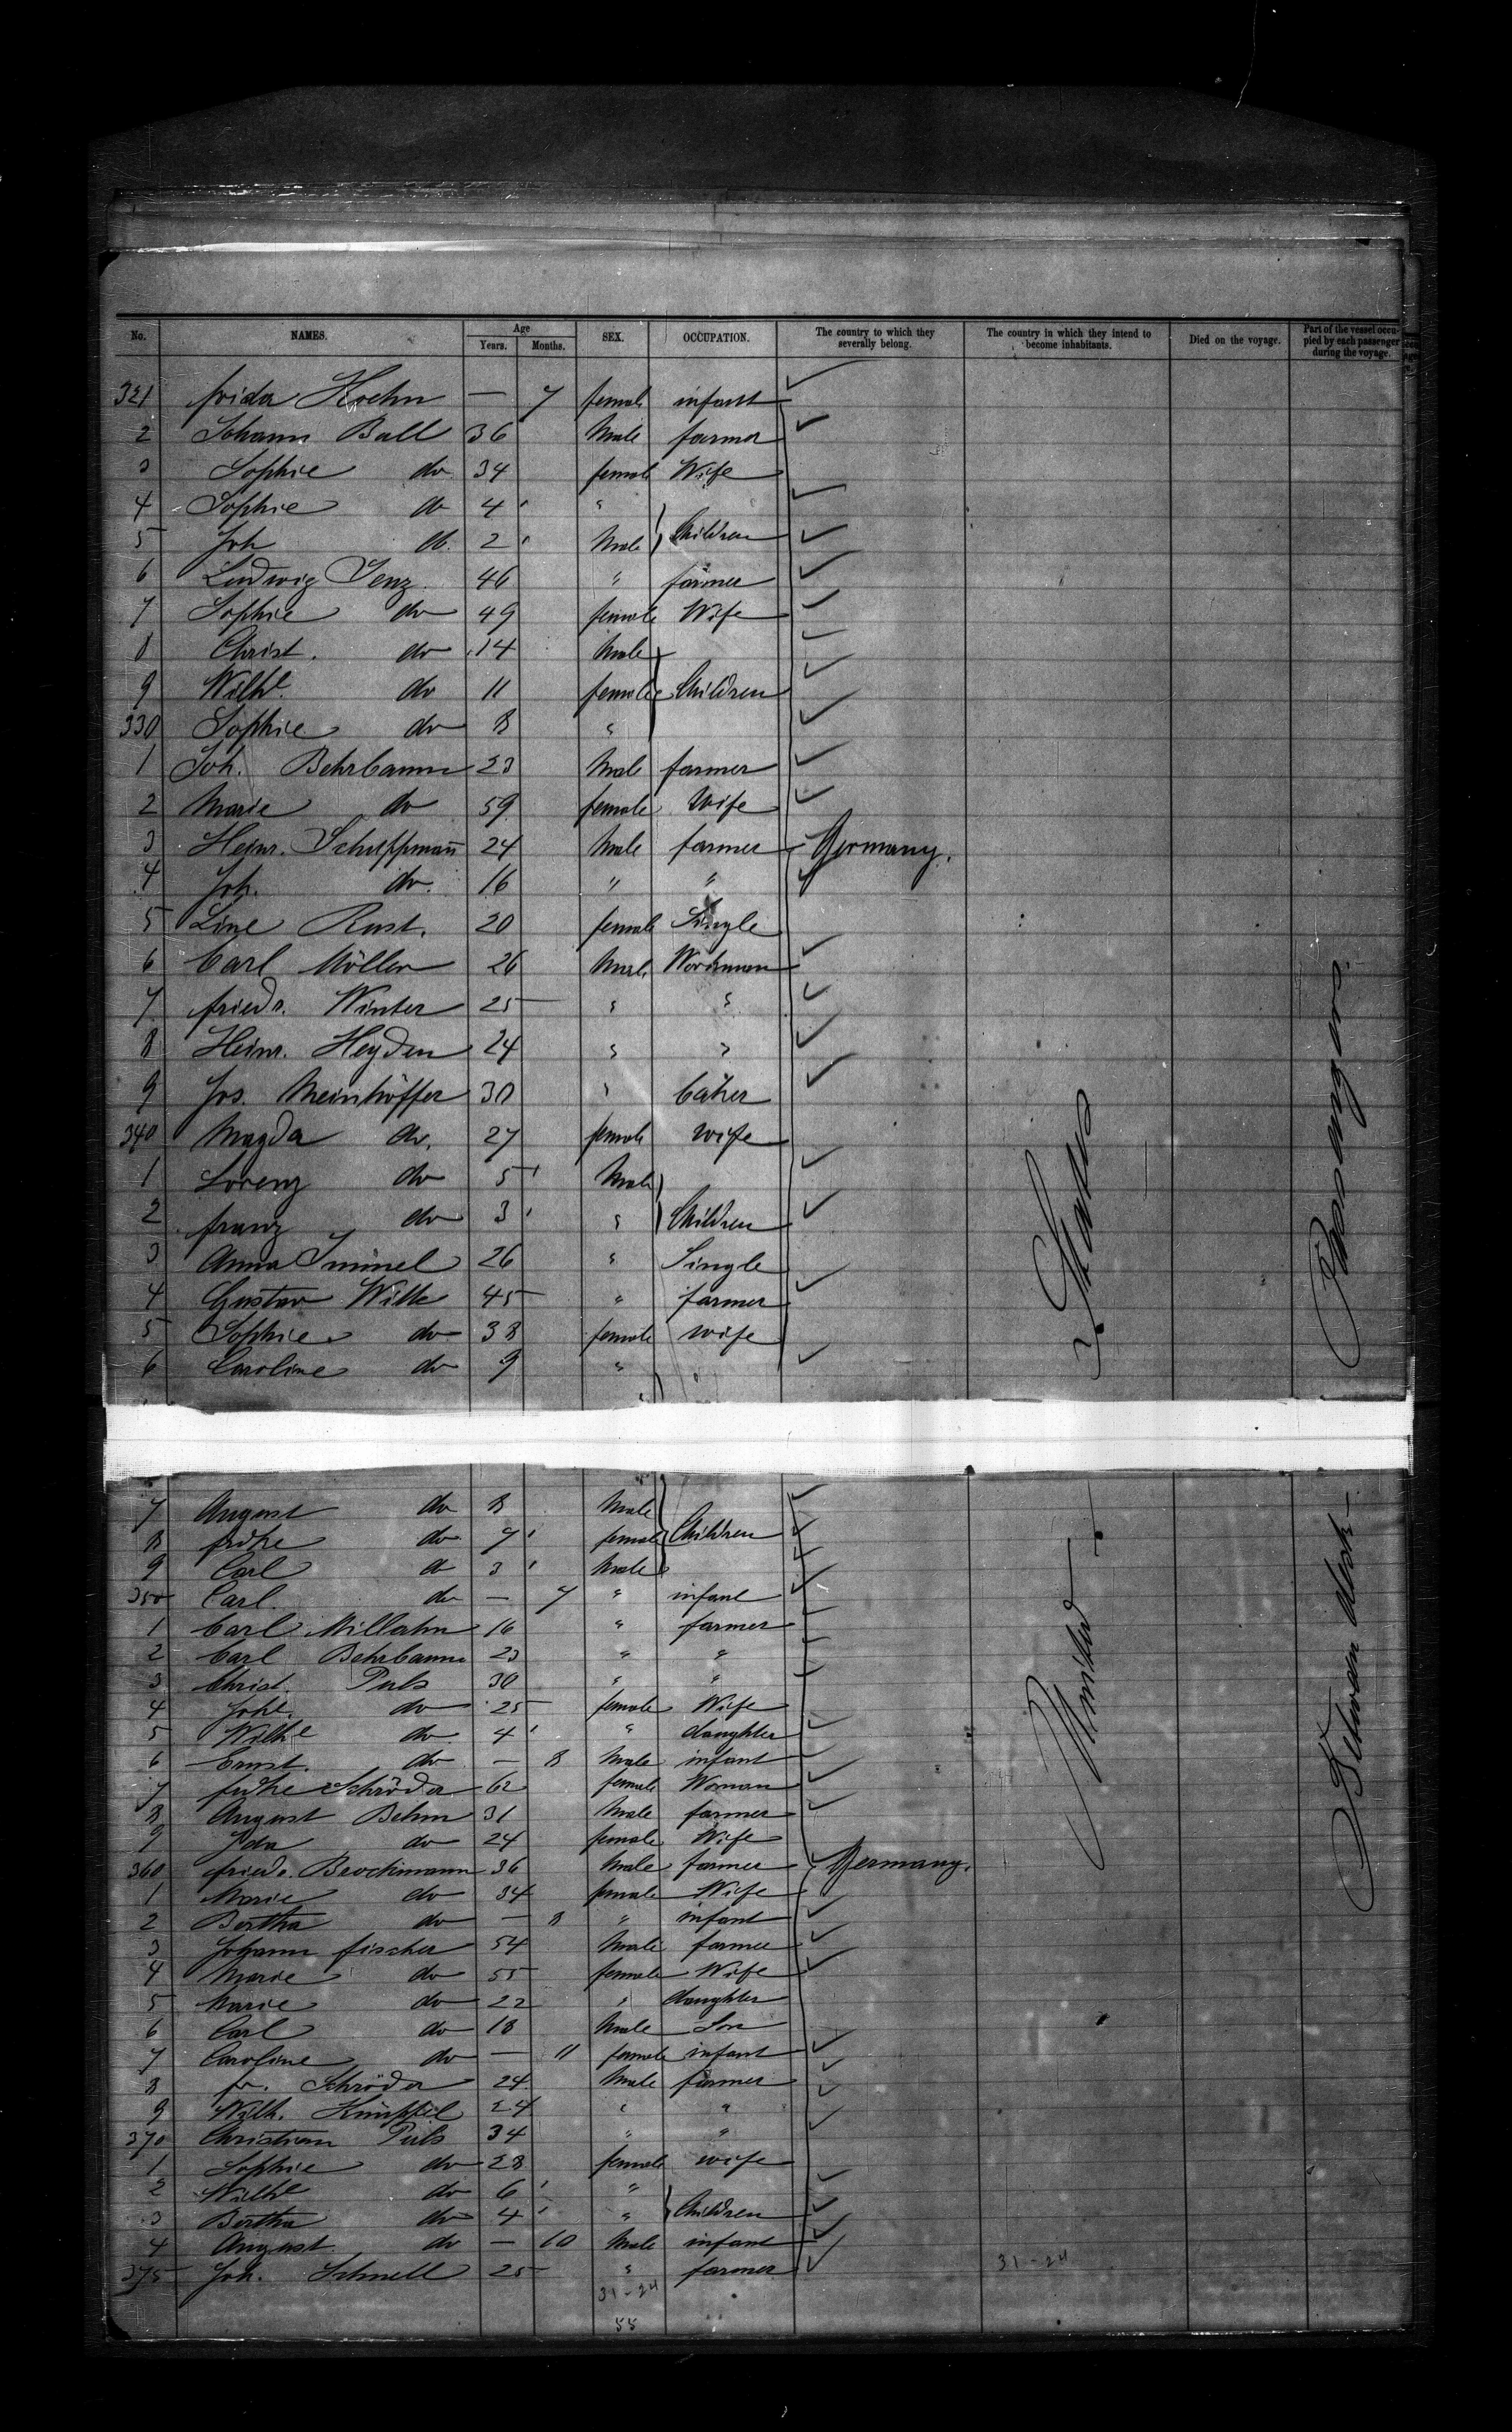 No. NAMES. Age Years. Months. SEX. OCCUPATION. The country to which they severally belong. The country in which they intend to become inhabitants. Died on the voyage. Part of the vessel occupied by each passenger during the voyage.
321 frida Hoehn — 7 female infant
2 Johann Ball 36 Male farmer
3 Sophie do 34 female Wife
4 Sophie do 4 "
5 Joh do 2 Male Children
6 Ludwig Jenz 46 " farmer
7 Sophie do 49 female Wife
8 Christ. do 14 Male
9 Wilhe. do 11 female Children
330 Sophie do 8 "
1 Joh. Behrbaum 23 Male farmer
2 Marie do 59 female Wife
3 Heinr. Schuppmañ 24 Male farmer Germany.
4 Joh. do 16 " "
5 Line Rust. 20 female Single
6 Carl Möller 26 Male Workman
7 friedr. Winter 25 " "
8 Heinr. Heyden 24 " "
9 Jos. Meinhöffer 30 " baker
340 Magda do. 27 female wife
1 Lorenz do 5 Male
2 franz do 3 " Children
3 Anna 26 " Single
4 Gustav Wilk 45 " farmer
5 Sophie do 38 female wife
6 Caroline do 9 "
7 August do 8 Male
8 frdke do 7 female Children
9 Carl do 3 Male
350 Carl do — 7 " infant
1 Carl Millahn 16 " farmer
2 Carl Behrbaum 23 " "
3 Christ. Puls 30 " "
4 Johe. do 25 female Wife
5 Wilhe do 4 " daughter
6 Ernst. do — 8 Male infant
7 frdke Schröder 62 female Woman
8 August Behm 31 Male farmer
9 Ida do 24 female Wife
360 friedr. Brockmann 36 Male farmer Germany.
1 Marie do 34 female Wife
2 Bertha do — 8 " infant
3 Johann fischer 54 Male farmer
4 Marie do 55 female Wife
5 Marie do 22 " daughter
6 Carl do 18 Male Son
7 Caroline do — 11 female infant
8 fr. Schröder 24 Male farmer
9 Wilh. 24 " "
370 Christian Puls 34 " "
1 Sophie do 28 female wife
2 Wilhe do 6 "
3 Bertha do 4 " Children
4 August do — 10 Male infant
375 Joh. Schnell 25 " farmer
31-24 31-24
55
United States
Between deck Passengers.